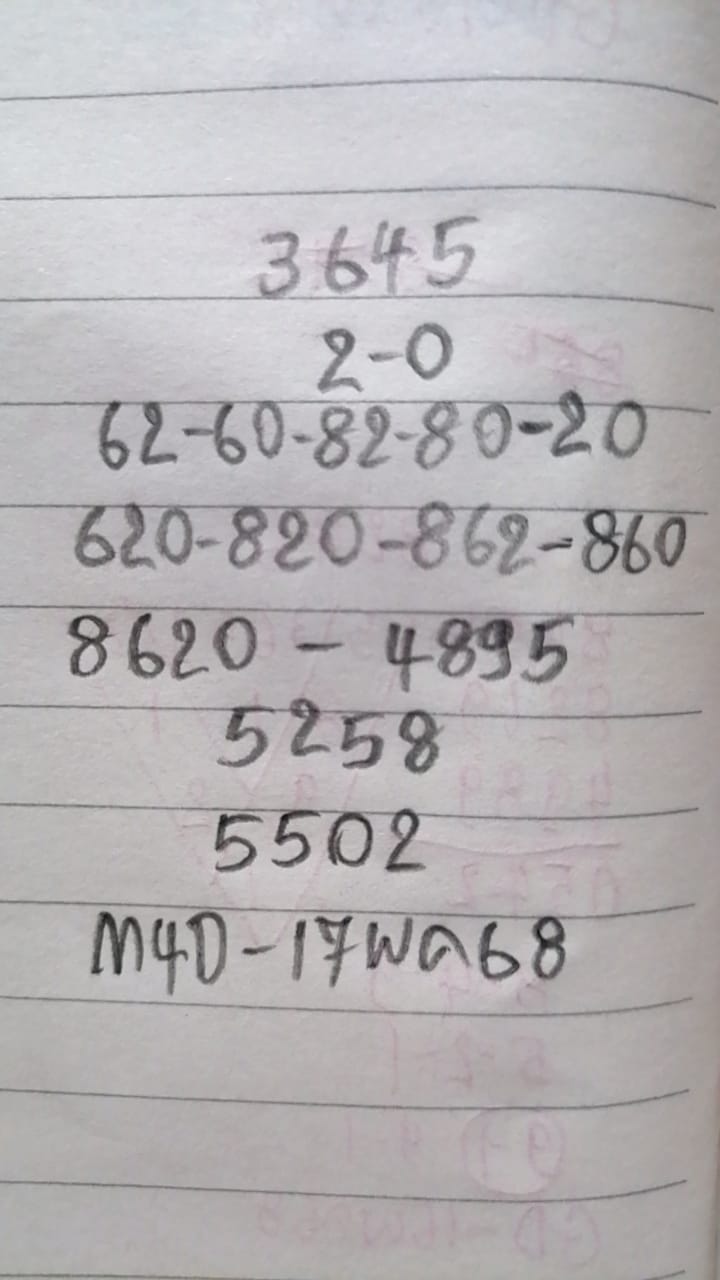 3645
2-0
62-60-82-80-20
620-820-862-860
8620 - 4895
5258
5502
M4D-17พค68